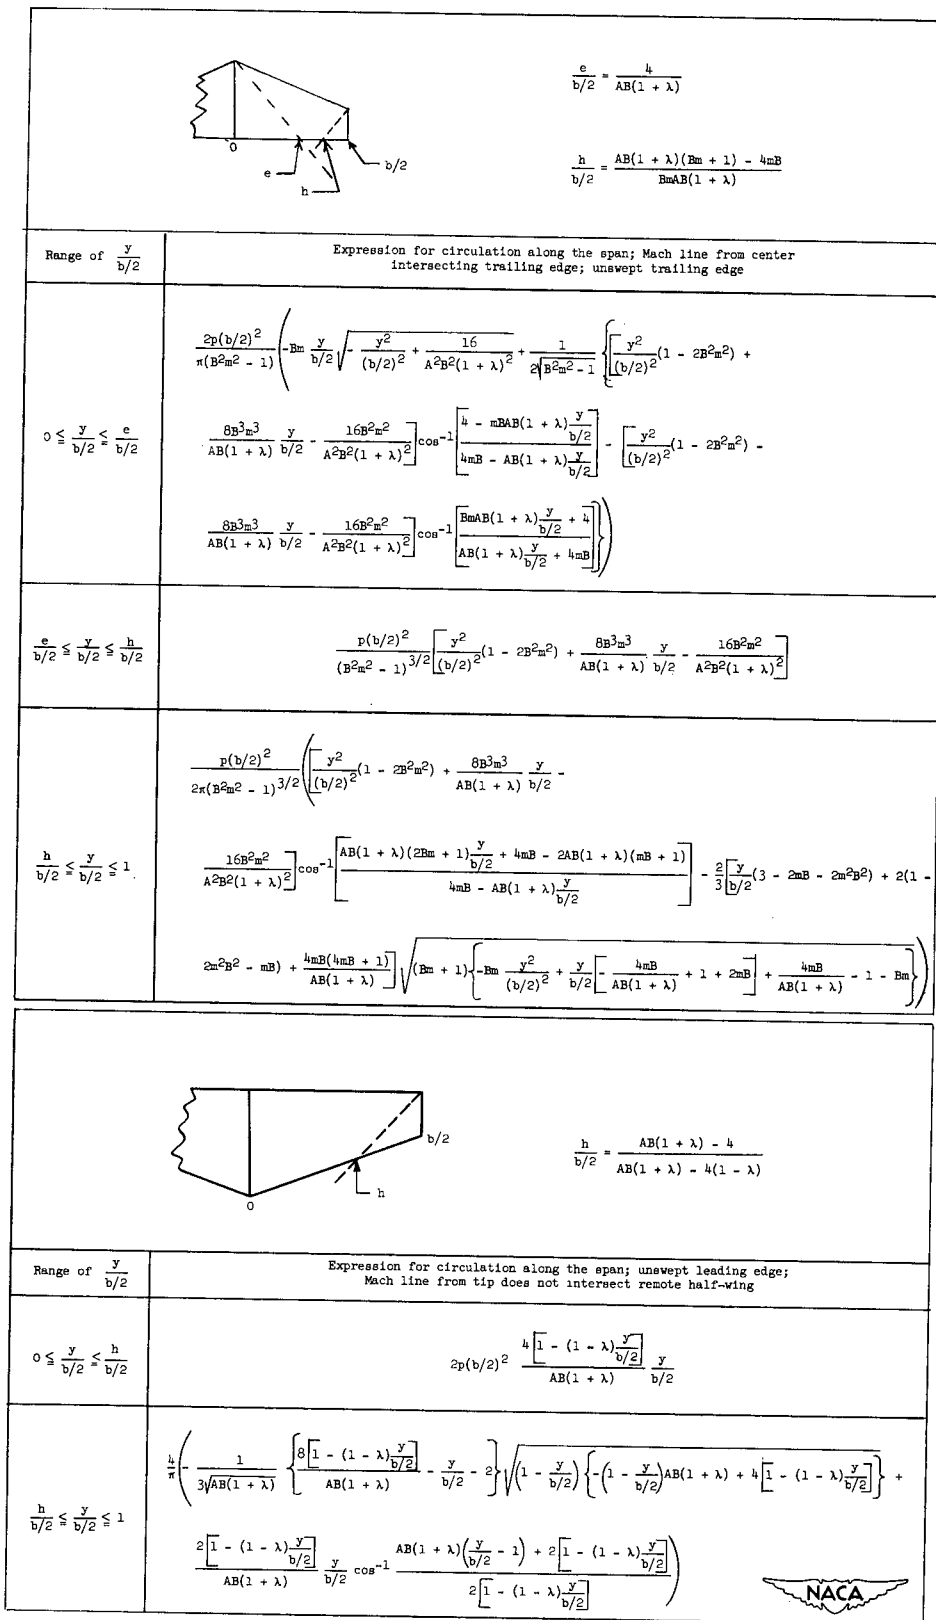 e/(b/2) = 4/(AB(1 + λ))
h/(b/2) = (AB(1 + λ)(Bm + 1) - 4mB)/(BmAB(1 + λ))
0
e
h
b/2
Range of y/(b/2)
Expression for circulation along the span; Mach line from center
intersecting trailing edge; unswept trailing edge
0 ≦ y/(b/2) ≦ e/(b/2)
2p(b/2)²/(π(B²m² - 1)) (-Bm y/(b/2) √(- y²/(b/2)² + 16/(A²B²(1 + λ)²)) + 1/(2√(B²m² - 1)) {[y²/(b/2)² (1 - 2B²m²) +
8B³m³/(AB(1 + λ)) y/(b/2) - 16B²m²/(A²B²(1 + λ)²)] cos⁻¹ [(4 - mBAB(1 + λ) y/(b/2))/(4mB - AB(1 + λ) y/(b/2))] - [y²/(b/2)² (1 - 2B²m²) -
8B³m³/(AB(1 + λ)) y/(b/2) - 16B²m²/(A²B²(1 + λ)²)] cos⁻¹ [(BmAB(1 + λ) y/(b/2) + 4)/(AB(1 + λ) y/(b/2) + 4mB)]})
e/(b/2) ≦ y/(b/2) ≦ h/(b/2)
p(b/2)²/(B²m² - 1)^(3/2) [y²/(b/2)² (1 - 2B²m²) + 8B³m³/(AB(1 + λ)) y/(b/2) - 16B²m²/(A²B²(1 + λ)²)]
h/(b/2) ≦ y/(b/2) ≦ 1
p(b/2)²/(2π(B²m² - 1)^(3/2)) ([y²/(b/2)² (1 - 2B²m²) + 8B³m³/(AB(1 + λ)) y/(b/2) -
16B²m²/(A²B²(1 + λ)²)] cos⁻¹ [(AB(1 + λ)(2Bm + 1) y/(b/2) + 4mB - 2AB(1 + λ)(mB + 1))/(4mB - AB(1 + λ) y/(b/2))] - 2/3 [y/(b/2) (3 - 2mB - 2m²B²) + 2(1 -
2m²B² - mB) + 4mB(4mB + 1)/(AB(1 + λ))] √((Bm + 1){-Bm y²/(b/2)² + y/(b/2) [- 4mB/(AB(1 + λ)) + 1 + 2mB] + 4mB/(AB(1 + λ)) - 1 - Bm}))
b/2
h
0
h/(b/2) = (AB(1 + λ) - 4)/(AB(1 + λ) - 4(1 - λ))
Range of y/(b/2)
Expression for circulation along the span; unswept leading edge;
Mach line from tip does not intersect remote half-wing
0 ≦ y/(b/2) ≦ h/(b/2)
2p(b/2)² 4[1 - (1 - λ) y/(b/2)]/(AB(1 + λ)) y/(b/2)
h/(b/2) ≦ y/(b/2) ≦ 1
4/π (- 1/(3√(AB(1 + λ))) {8[1 - (1 - λ) y/(b/2)]/(AB(1 + λ)) - y/(b/2) - 2} √((1 - y/(b/2)) {-(1 - y/(b/2))AB(1 + λ) + 4[1 - (1 - λ) y/(b/2)]}) +
2[1 - (1 - λ) y/(b/2)]/(AB(1 + λ)) y/(b/2) cos⁻¹ (AB(1 + λ)(y/(b/2) - 1) + 2[1 - (1 - λ) y/(b/2)])/(2[1 - (1 - λ) y/(b/2)]))
NACA